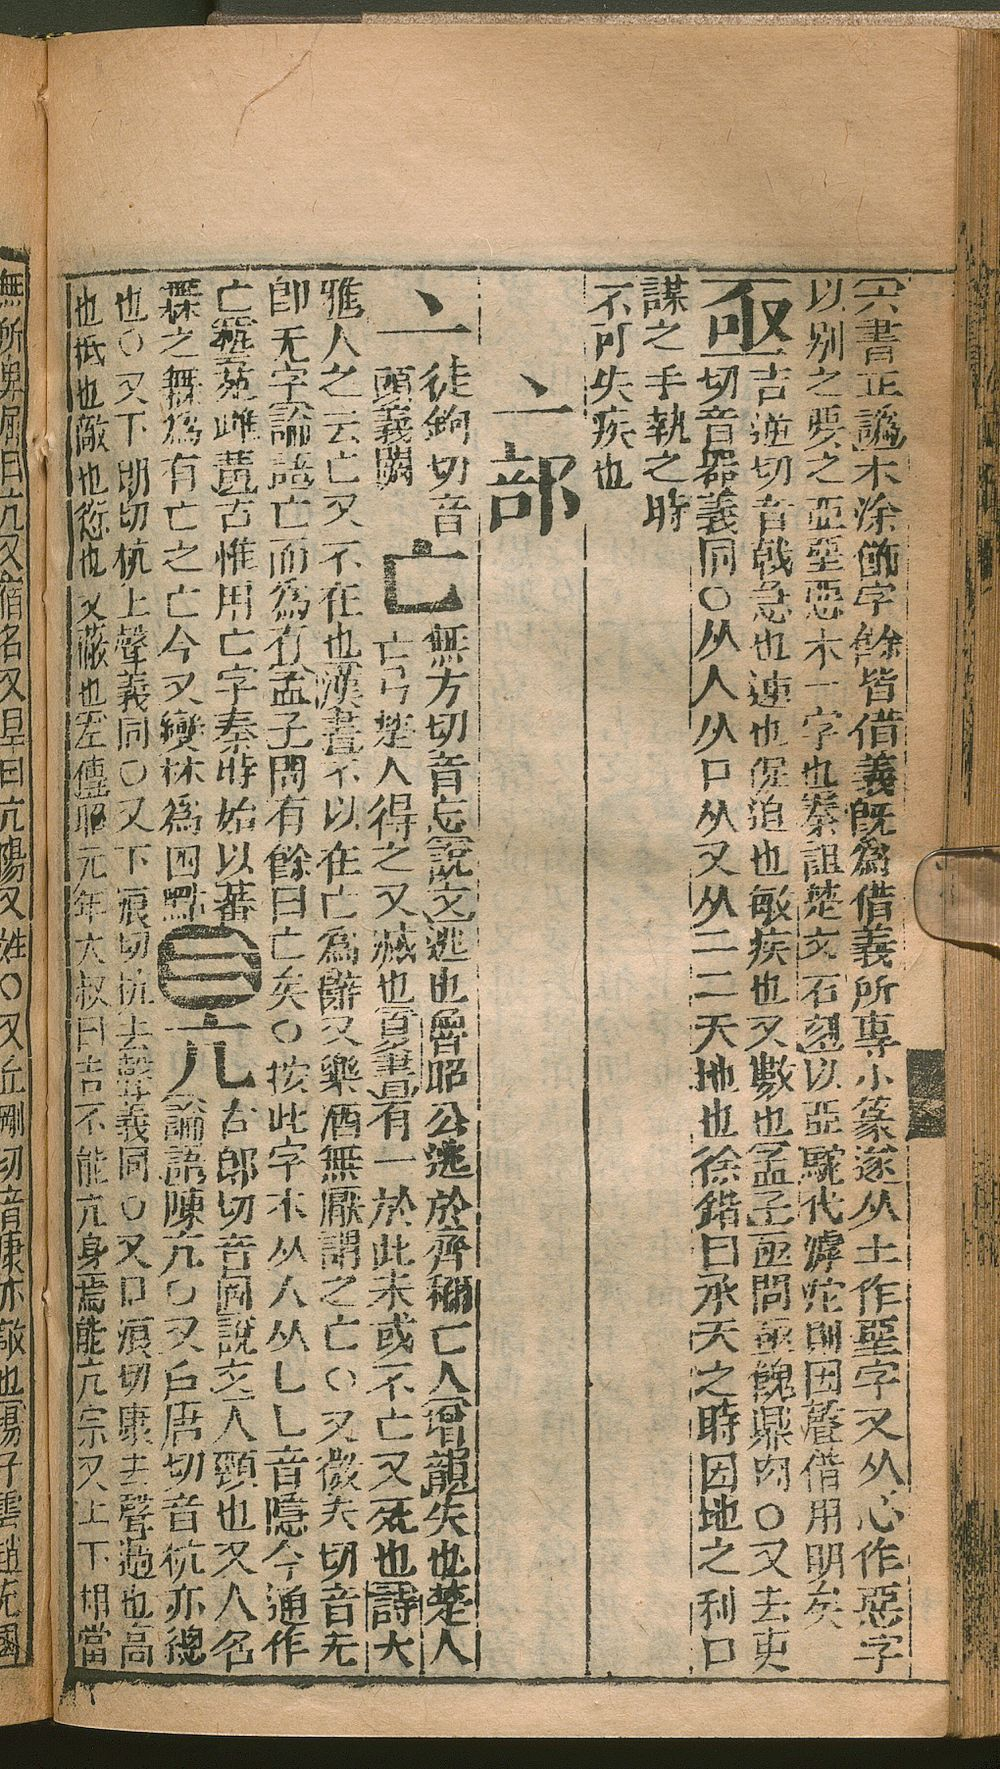 六書正譌本涂飾字餘皆借義既爲借義所專小篆遂从土作堊字又从心作惡字
以別之要之亞堊惡本一字也秦詛楚文石刻以亞駝代滹沱則因聲借用明矣
亟
吉逆切音戟急也速也促迫也敏疾也又數也孟子亟問亟餽鼎肉○又去吏
切音器義同○从人从口从又从二二天地也徐鍇曰承天之時因地之利口
謀之手執之時
不可失疾也
亠部
亠
徒鉤切音
頭義闕
亡
無方切音忘說文逃也魯昭公逃於齊稱亡人增韻失也楚人
亡弓楚人得之又滅也夏書有一於此未或不亡又死也詩大
雅人之云亡又不在也漢書不以在亡爲辭又樂酒無厭謂之亡○又微夫切音无
卽无字論語亡而爲有孟子問有餘曰亡矣○按此字本从人从乚乚音隱今通作
亡藝苑雌黃古惟用亡字秦時始以蕃
橆之橆爲有亡之亡今又變林爲四點
三
亢
古郎切音岡說文人頸也又人名
論語陳亢○又戶唐切音杭亦總
也○又下朗切杭上聲義同○又下浪切杭去聲義同○又口浪切康去聲過也高
也抵也敵也愆也又蔽也左傳昭元年大叔曰吉不能亢身焉能亢宗又上下相當
無所卑屈曰亢又宿名又旱曰亢陽又姓○又丘剛切音康亦敵也揚子雲趙充國